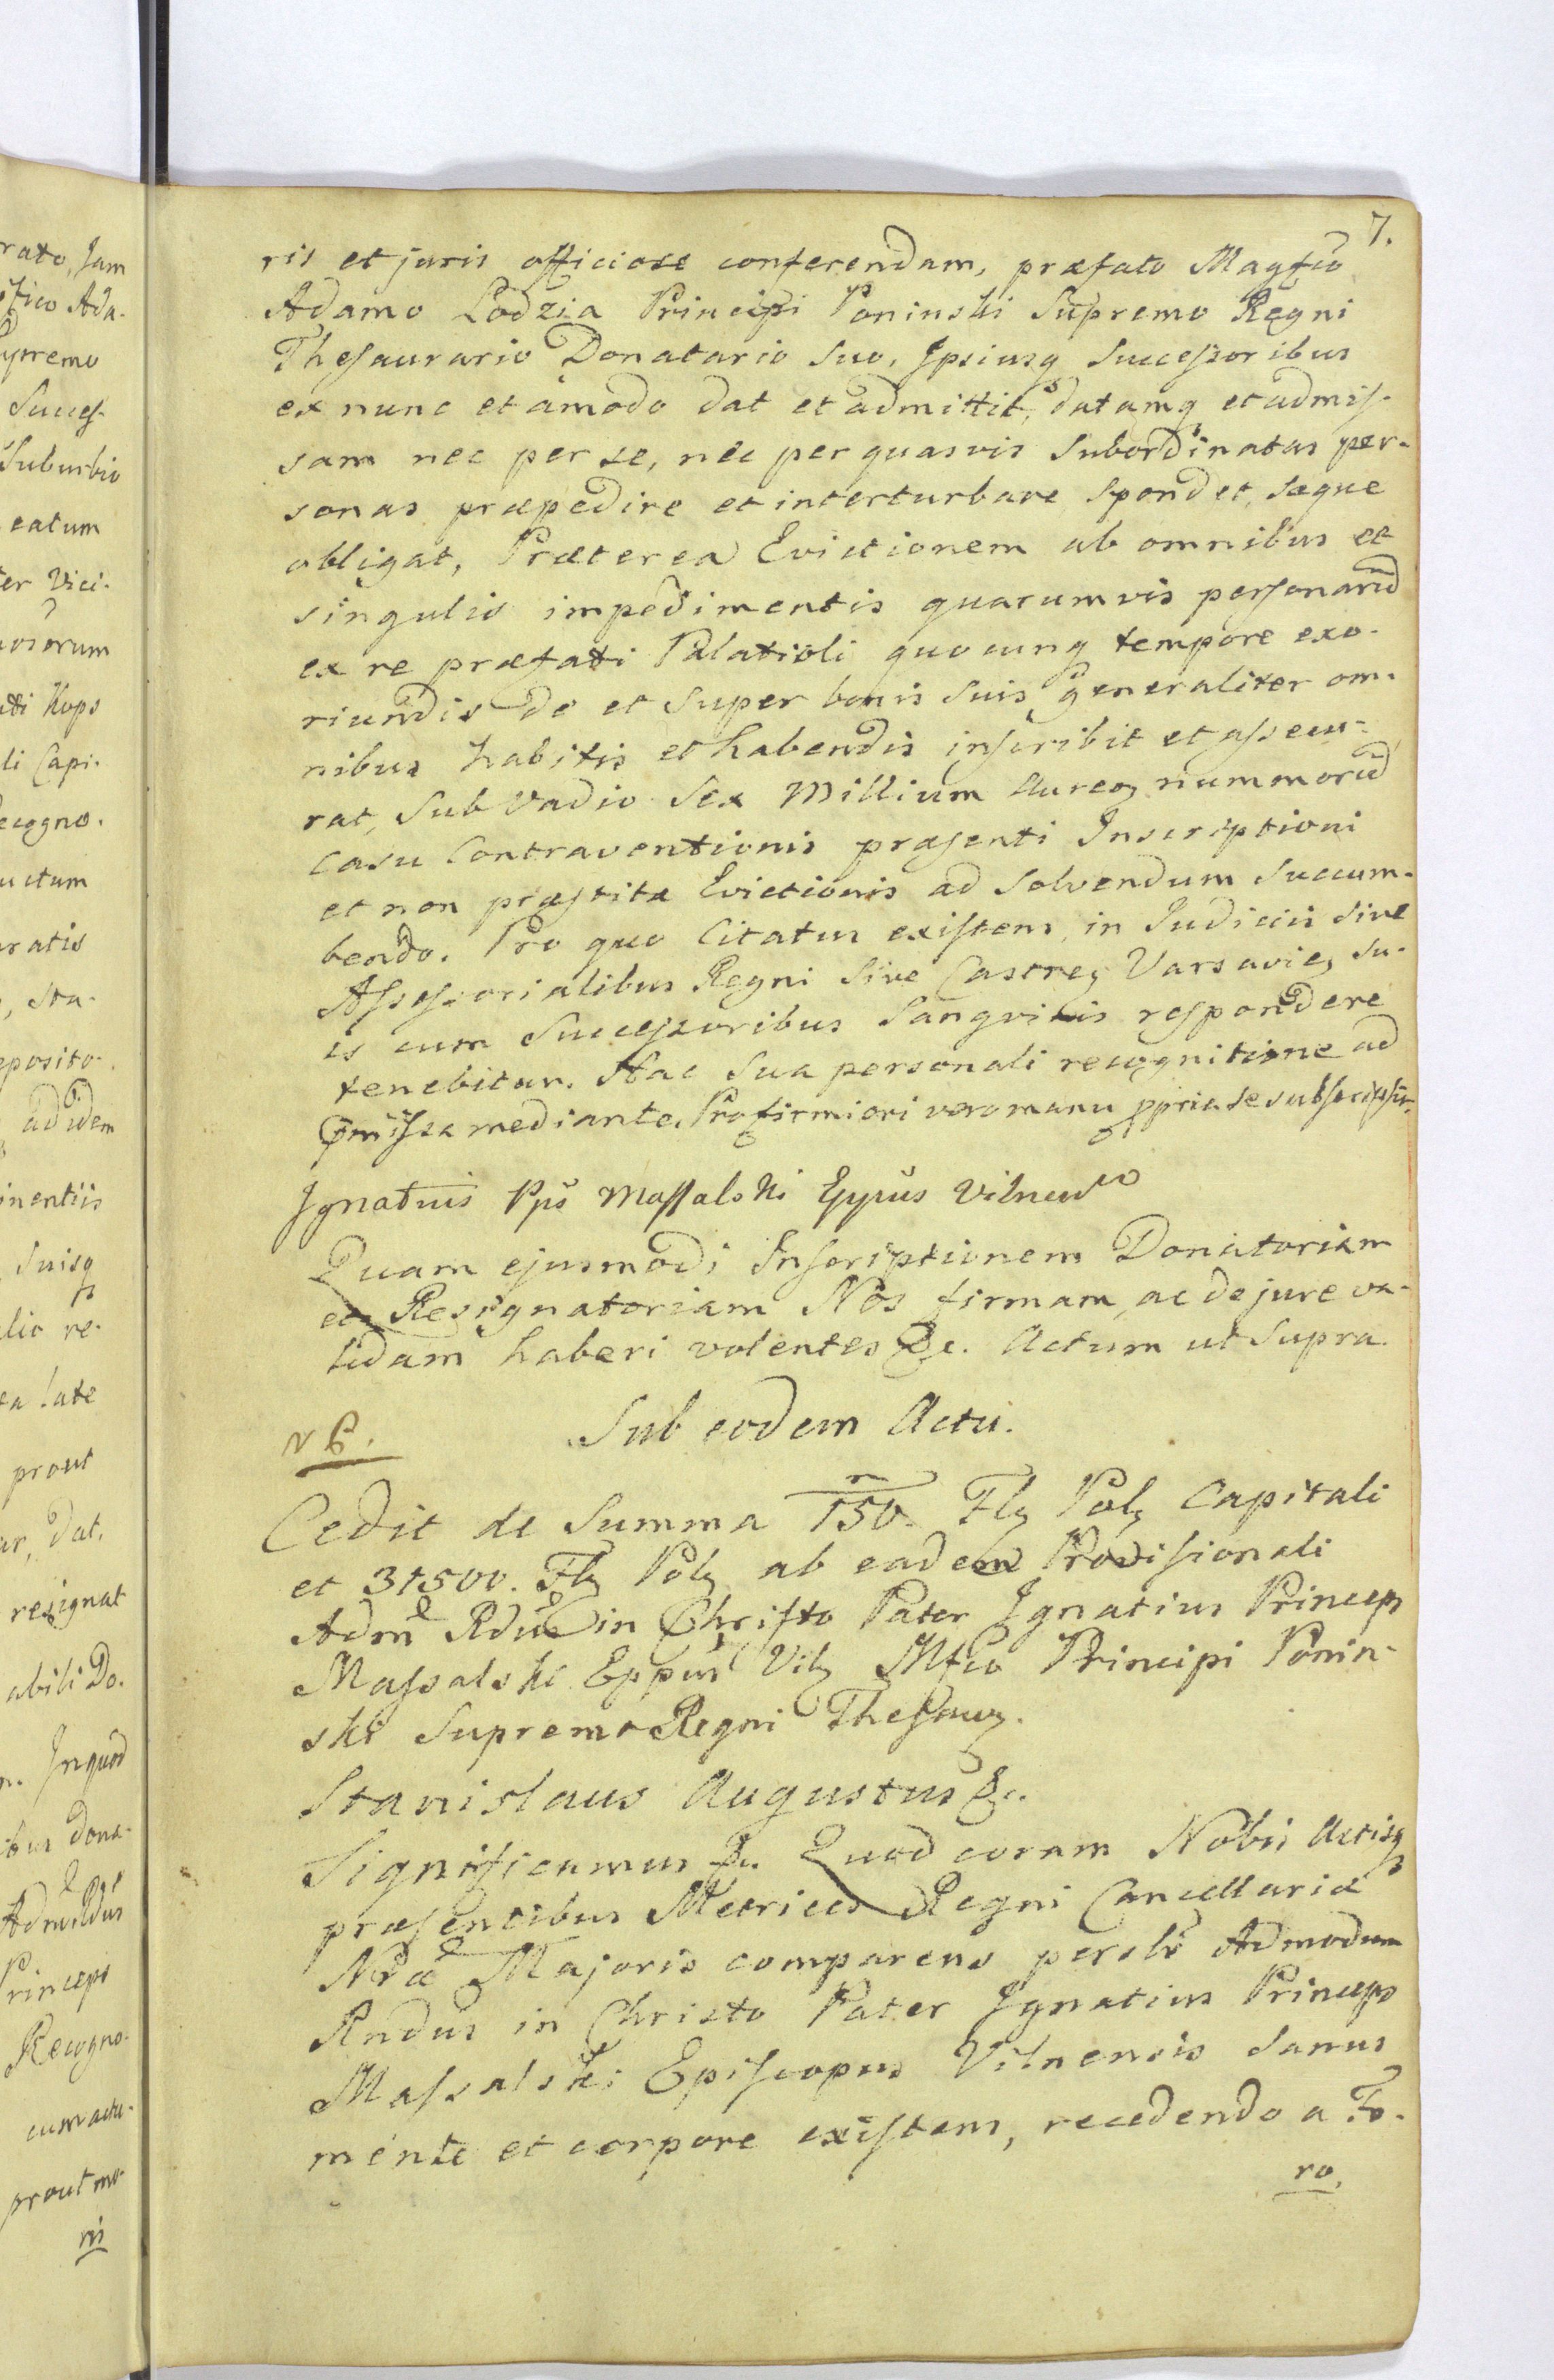 7.
ris et juris officiose conferendam, præfato Magfco
Adamo Lodzia Principi Poninski Supremo Regni
Thesaurario Donatario suo, Ipsiusq Successoribus
ex nunc et amodo dat et admittit, datamq et admis-
sam nec per se, nec per quasvis Subordinatas per-
sonas præpedire et interturbare spondet, seque
obligat, Præterea Evictionem ab omnibus et
singulis impedimentis quarumvis personarũ
ex re præfati Palatioli quocunq tempore exo-
riundis de et super bonis suis generaliter om-
nibus habitis et habendis inscribit et assecu-
rat, Sub Vadio Sex Millium Aureoӡ nummorũ
casu Contraventionis præsenti Inscriptioni
et non præstitæ Evictionis ad Solvendum Succum-
bendo. Pro quo Citatus existens, in Judiciis sive
Assessorialibus Regni Sive Castreӡ Varsavieӡ su-
is cum Successoribus Sangvinis respondere
tenebitur. Hac Sua personali recognitione ad
pmissa mediante. Pro firmiori vero manu ppria se subscripsit.
Ignatius Pps Massalski Eppus Vilnen
Quam ejusmodi Inscriptionem Donatoriam
et Resignatoriam Nos firmam, ac de jure va-
lidam haberi volentes &c. Actum ut Supra.
Sub eodem Actu.
N 6.
Cedit de Summa 150. Flӡ Polӡ Capitali
et 31500. Flӡ Polӡ ab eadem Provisionali
Adm Rdus in Christo Pater Ignatius Princeps
Massalski Eppus Vilӡ Mfco Principi Ponin-
ski Supremo Regni Thesauӡ.
Stanislaus Augustus &c.
Significamus &c. Quod coram Nobis Actisq
præsentibus Metrices Regni Cancellariæ
Nræ Majoris comparens perslr Admodum
Rndus in Christo Pater Ignatius Princeps
Massalski Episcopus Vilnensis Sanus
mente et corpore existens, recedendo a Fo-
ro,
rato, Jam
fico Ada-
upremo
Succes-
Suburbio
eatum
ter Vici-
osorum
li Capi-
ecogno-
uctum
ratis
, sta-
eposito-
ad idem
inentiis
suisq
lio re-
late
prout
ar, dat,
resignat
abili Do-
n. Inquod
ibus Dona-
Adm Rdus
Princeps
Recogno-
cum actu-
prout mo-
ris